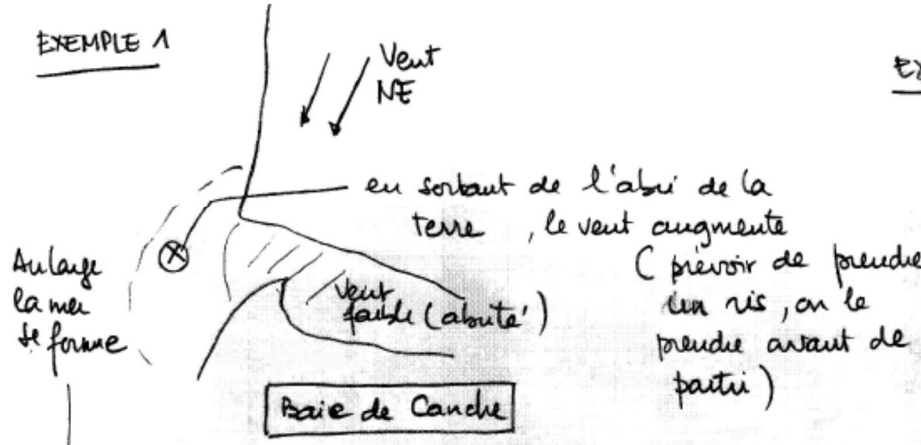 EXEMPLE 1
Vent
NE
Ex
en sortant de l'abri de la
terre, le vent augmente
(prévoir de prendre
un ris, ou le
prendre avant de
partir)
Au large
la mer
se forme
vent
faible (abrité)
Baie de Canche